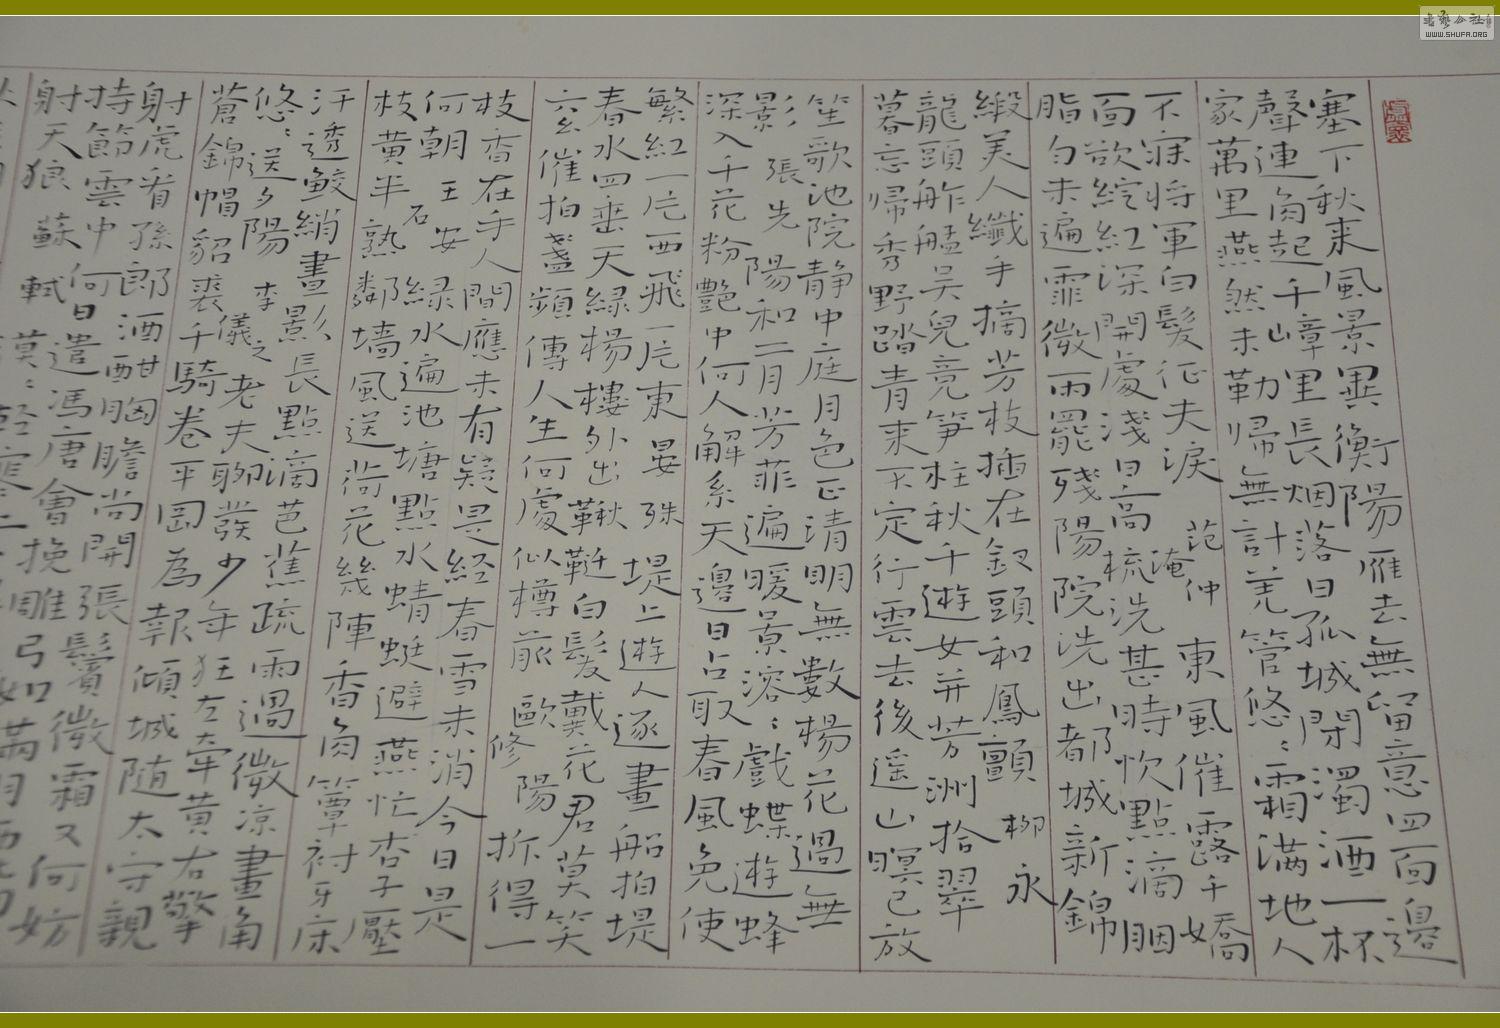 塞下秋来風景異衡陽雁去無留意四面邊
聲連角起千嶂里長烟落日孤城閉濁酒一杯
家萬里燕然未勒歸無計羌管悠悠霜满地人
不寐将軍白髮征夫淚 范仲淹 東風催露千嬌
面欲綻紅深開處淺日高梳洗甚時忺點滴胭
脂匀未遍霏微雨罷殘陽院洗出都城新錦
緞美人纖手摘芳枝插在釵頭和鳳顫 柳永
龍頭舴艋吴兒竞笋柱秋千遊女并芳洲拾翠
暮忘歸秀野踏青来不定行雲去後遥山暝已放
笙歌池院静中庭月色正清明無數楊花過無
影 張先 陽和二月芳菲遍暖景溶：戲蝶遊蜂
深入千花粉艷中何人解系天邊日占取春風免使
繁紅一片西飛一片東 晏殊 堤上遊人逐畫船拍堤
春水四垂天緑楊樓外出鞦韆白髮戴花君莫笑
六幺催拍盞頻傳人生何處似樽前 歐陽修 折得一
枝香在手人間應未有疑是经春雪未消今日是
何朝 王安石 緑水遍池塘點水蜻蜓避燕忙杏子壓
枝黄半熟鄰墙風送荷花幾陣香角簟衬牙床
汗透鲛綃晝影長點滴芭蕉疏雨過微凉畫角
悠：送夕陽 李之儀 老夫聊發少年狂左牵黄右擎
蒼錦帽貂裘千騎卷平岡為報傾城随太守親
射虎看孫郎酒酣胸膽尚開張鬢微霜又何妨
持節雲中何日遣馮唐會挽雕弓如满月西北
射天狼 蘇軾 漠：轻寒上
WWW.SHUFA.ORG